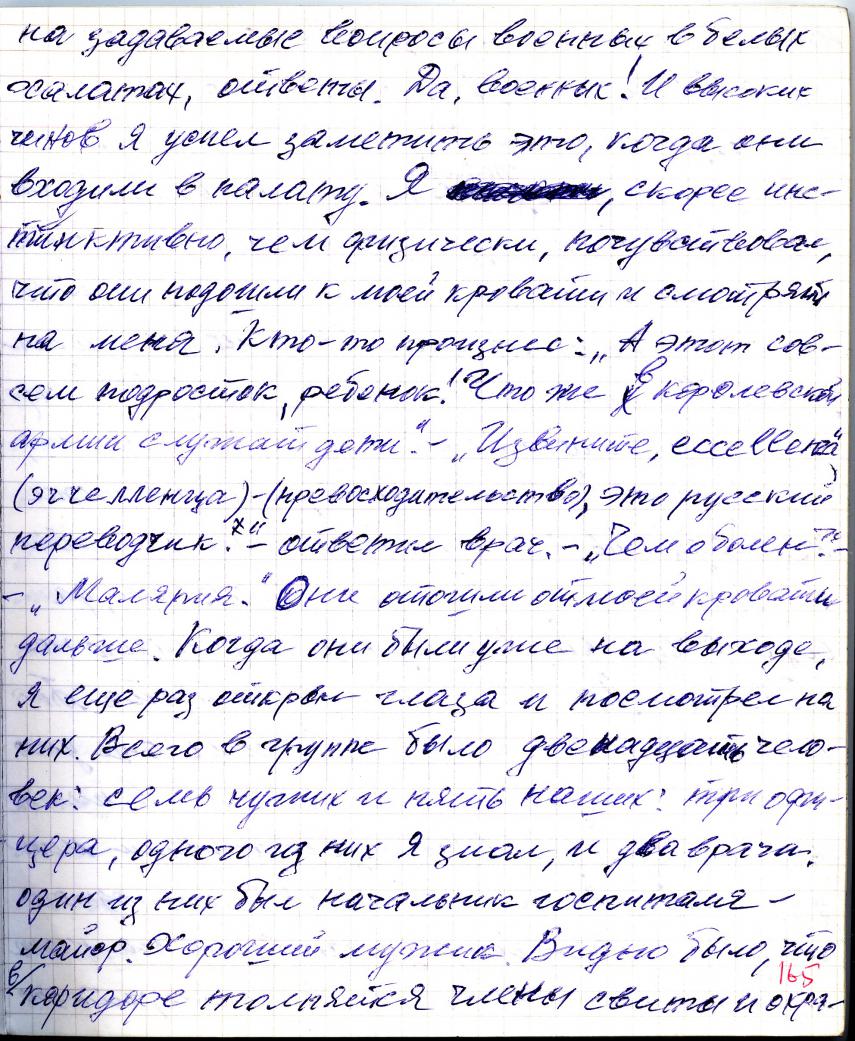 на задаваемые вопросы военных в белых
халатах, ответы. Да, военных! И высоких
чинов я успел заметить это, когда они
входили в палату. Я , скорее инс-
тинктивно, чем физически, почувствовал,
что они подошли к моей кровати и смотрят
на меня. Кто-то произнес: „А этот сов-
сем подросток, ребенок! Что же в королевской
армии служат дети". - „Извините, eccellenza"
(эччелленца) - (превосходительство), это русский
переводчик.х" - ответил врач. - „Чем болен?" -
- „Малярия." Они отошли от моей кровати
дальше. Когда они были уже на выходе,
я еще раз открыл глаза и посмотрел на
них. Всего в группе было двенадцать чело-
век: семь чужих и пять наших: три офи-
цера, одного из них я знал, и два врача.
один из них был начальник госпиталя -
майор. Хороший мужик. Видно было, что
в/ коридоре толпятся члены свиты и охра-
165